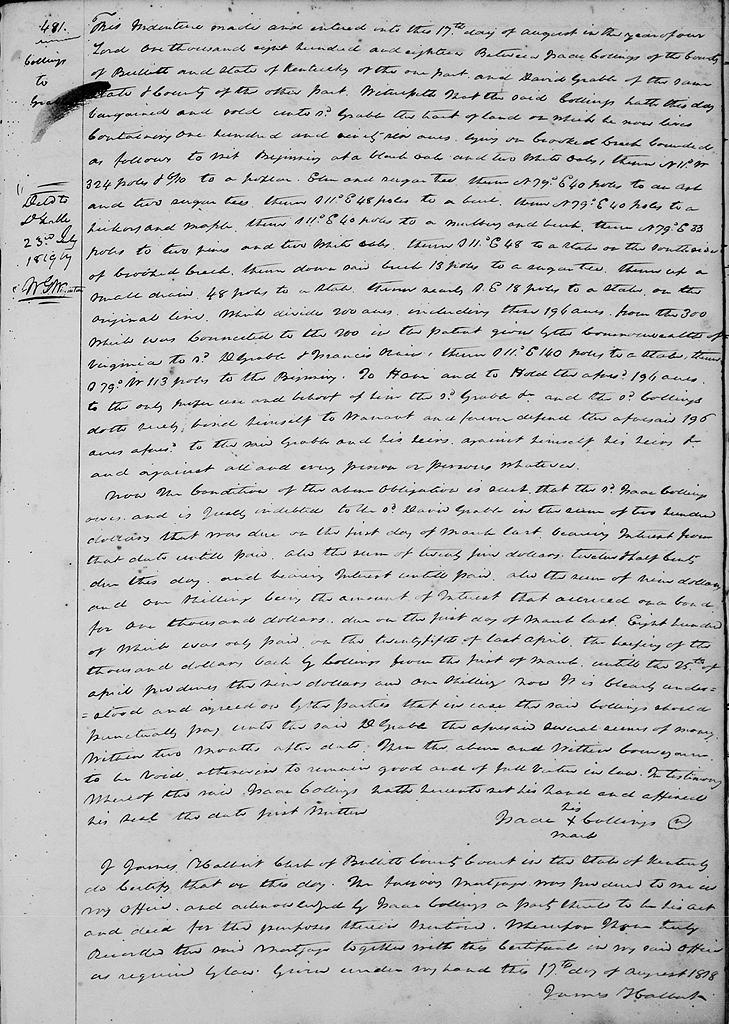 481.
Collings
to
Grable
Deld to
D Grable
23rd July
1819 by
W. T. W
This Indenture made and entered into this 17.th day of august in the year of our
Lord One thousand eight hundred and eighteen Between Isaac Collings of the County
of Bullitt and State of Kentucky of the one part, and David Grable of the same
State & County of the other part, Witnesseth that the said Collings hath this day
bargained and sold unto sd. Grable the tract of land on which he now lives
Containing One hundred and ninety six acres. lying on Crooked Creek bounded
as follows to wit Beginning at a black oak and two White oaks, thence N 11.° W
324 poles & 6/10 to a poplar. Elm and sugar tree, thence N 79.° E 40 poles to an ash
and two sugar trees. thence S 11.° E 48 poles to a beech, thence N 79.° E 40 poles to a
hickory and maple, thence S 11.° E 40 poles to a mulberry and beech, thence N 79.° E 33
poles to two pines and two White oaks, thence S 11.° E 48 to a stake on the south side
of Crooked Creek, thence down said Creek 13 poles to a sugar tree, thence up a
small drain 48 poles to a stake, thence nearly S. E 18 poles to a stake, on the
original line, Which divides 200 acres. including these 196 acres. from the 300
Which was Connected to the 200 in the patent given by the Commonwealth of
Virginia to sd. D Grable & Francis, thence S 11.° E 140 poles to a stake, thence
S 79.° W 113 poles to the Bigining. To Have and to Hold the afores.d 196 acres.
to the only proper use and behoof of him the sd. Grable &c and the sd. Collings
doth hereby bind himself to Warrant and forever defend the aforesaid 196
acres afores.d to the said Grable and his heirs. against himself his heirs &c
and against all and every person or persons whatever.
Now the Condition of the above Obligation is such, that the sd. Isaac Collings
owes, and is Justly indebted to the sd. David Grable in the sum of two hundred
dollars that was due on the first day of March last, bearing Interest from
that date untill paid, also the sum of twenty five dollars, twelve & half Cents
due this day, and bearing Interest untill paid, also the sum of nine dollars
and one shilling being the amount of Interest that accrued on a bond
for One thousand dollars. due on the first day of March last, Eight hundred
of which was only paid, on the twentyfifth of last april. the keeping of the
thousand dollars back by Collings from the first of March. untill the 25.th of
april produces the nine dollars and one shilling. now It is Clearly under=
=stood and agreed on by the parties that in case the said Collings should
punctually pay unto the said D Grable the aforesaid several sums of money.
Within two months after date, Then the above and Within Conveyance
to be Void, otherwise to remain good and of full Virtue in law. In testimony
Whereof the said Isaac Collings hath hereunto set his hand and affixed
his seal the date first Written
his
Isaac X Collings
mark
I James Halbert Clerk of Bullitt County Court in the State of Kentucky
do Certify that on this day. The foregoing Mortgage was produced to me in
my office, and acknowledged by Isaac Collings a party thereto to be his act
and deed for the purposes therein Mentioned. Whereupon I have truly
Recorded the said Mortgage together with this Certificate in my said office
as required by law. Given under my hand this 17.th day of august 1818
James Halbert